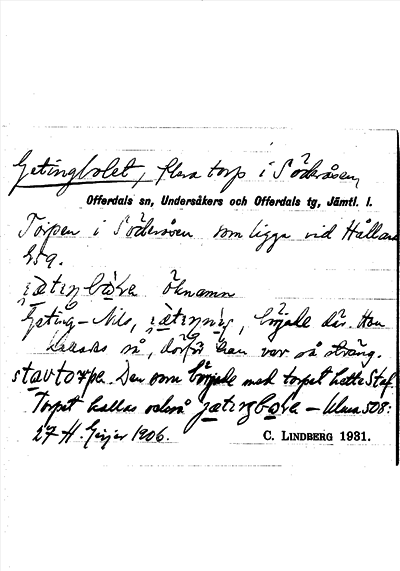 Getingbolet, flera torp i Söderåsen,
Offerdals sn, Undersåkers och Offerdals tg, Jämtl. l.
Torpen i Söderåsen som ligga vid Hållan
öknamn
Geting-Nils, började där. Han
kallades så, därför han var så sträng.
stavtorpe. Den som började med torpet hette Staf.
Torpet kallas också jætıŋbοlα – Ulma 508:
27 H. Geijer 1906.
C. LINDBERG 1931.